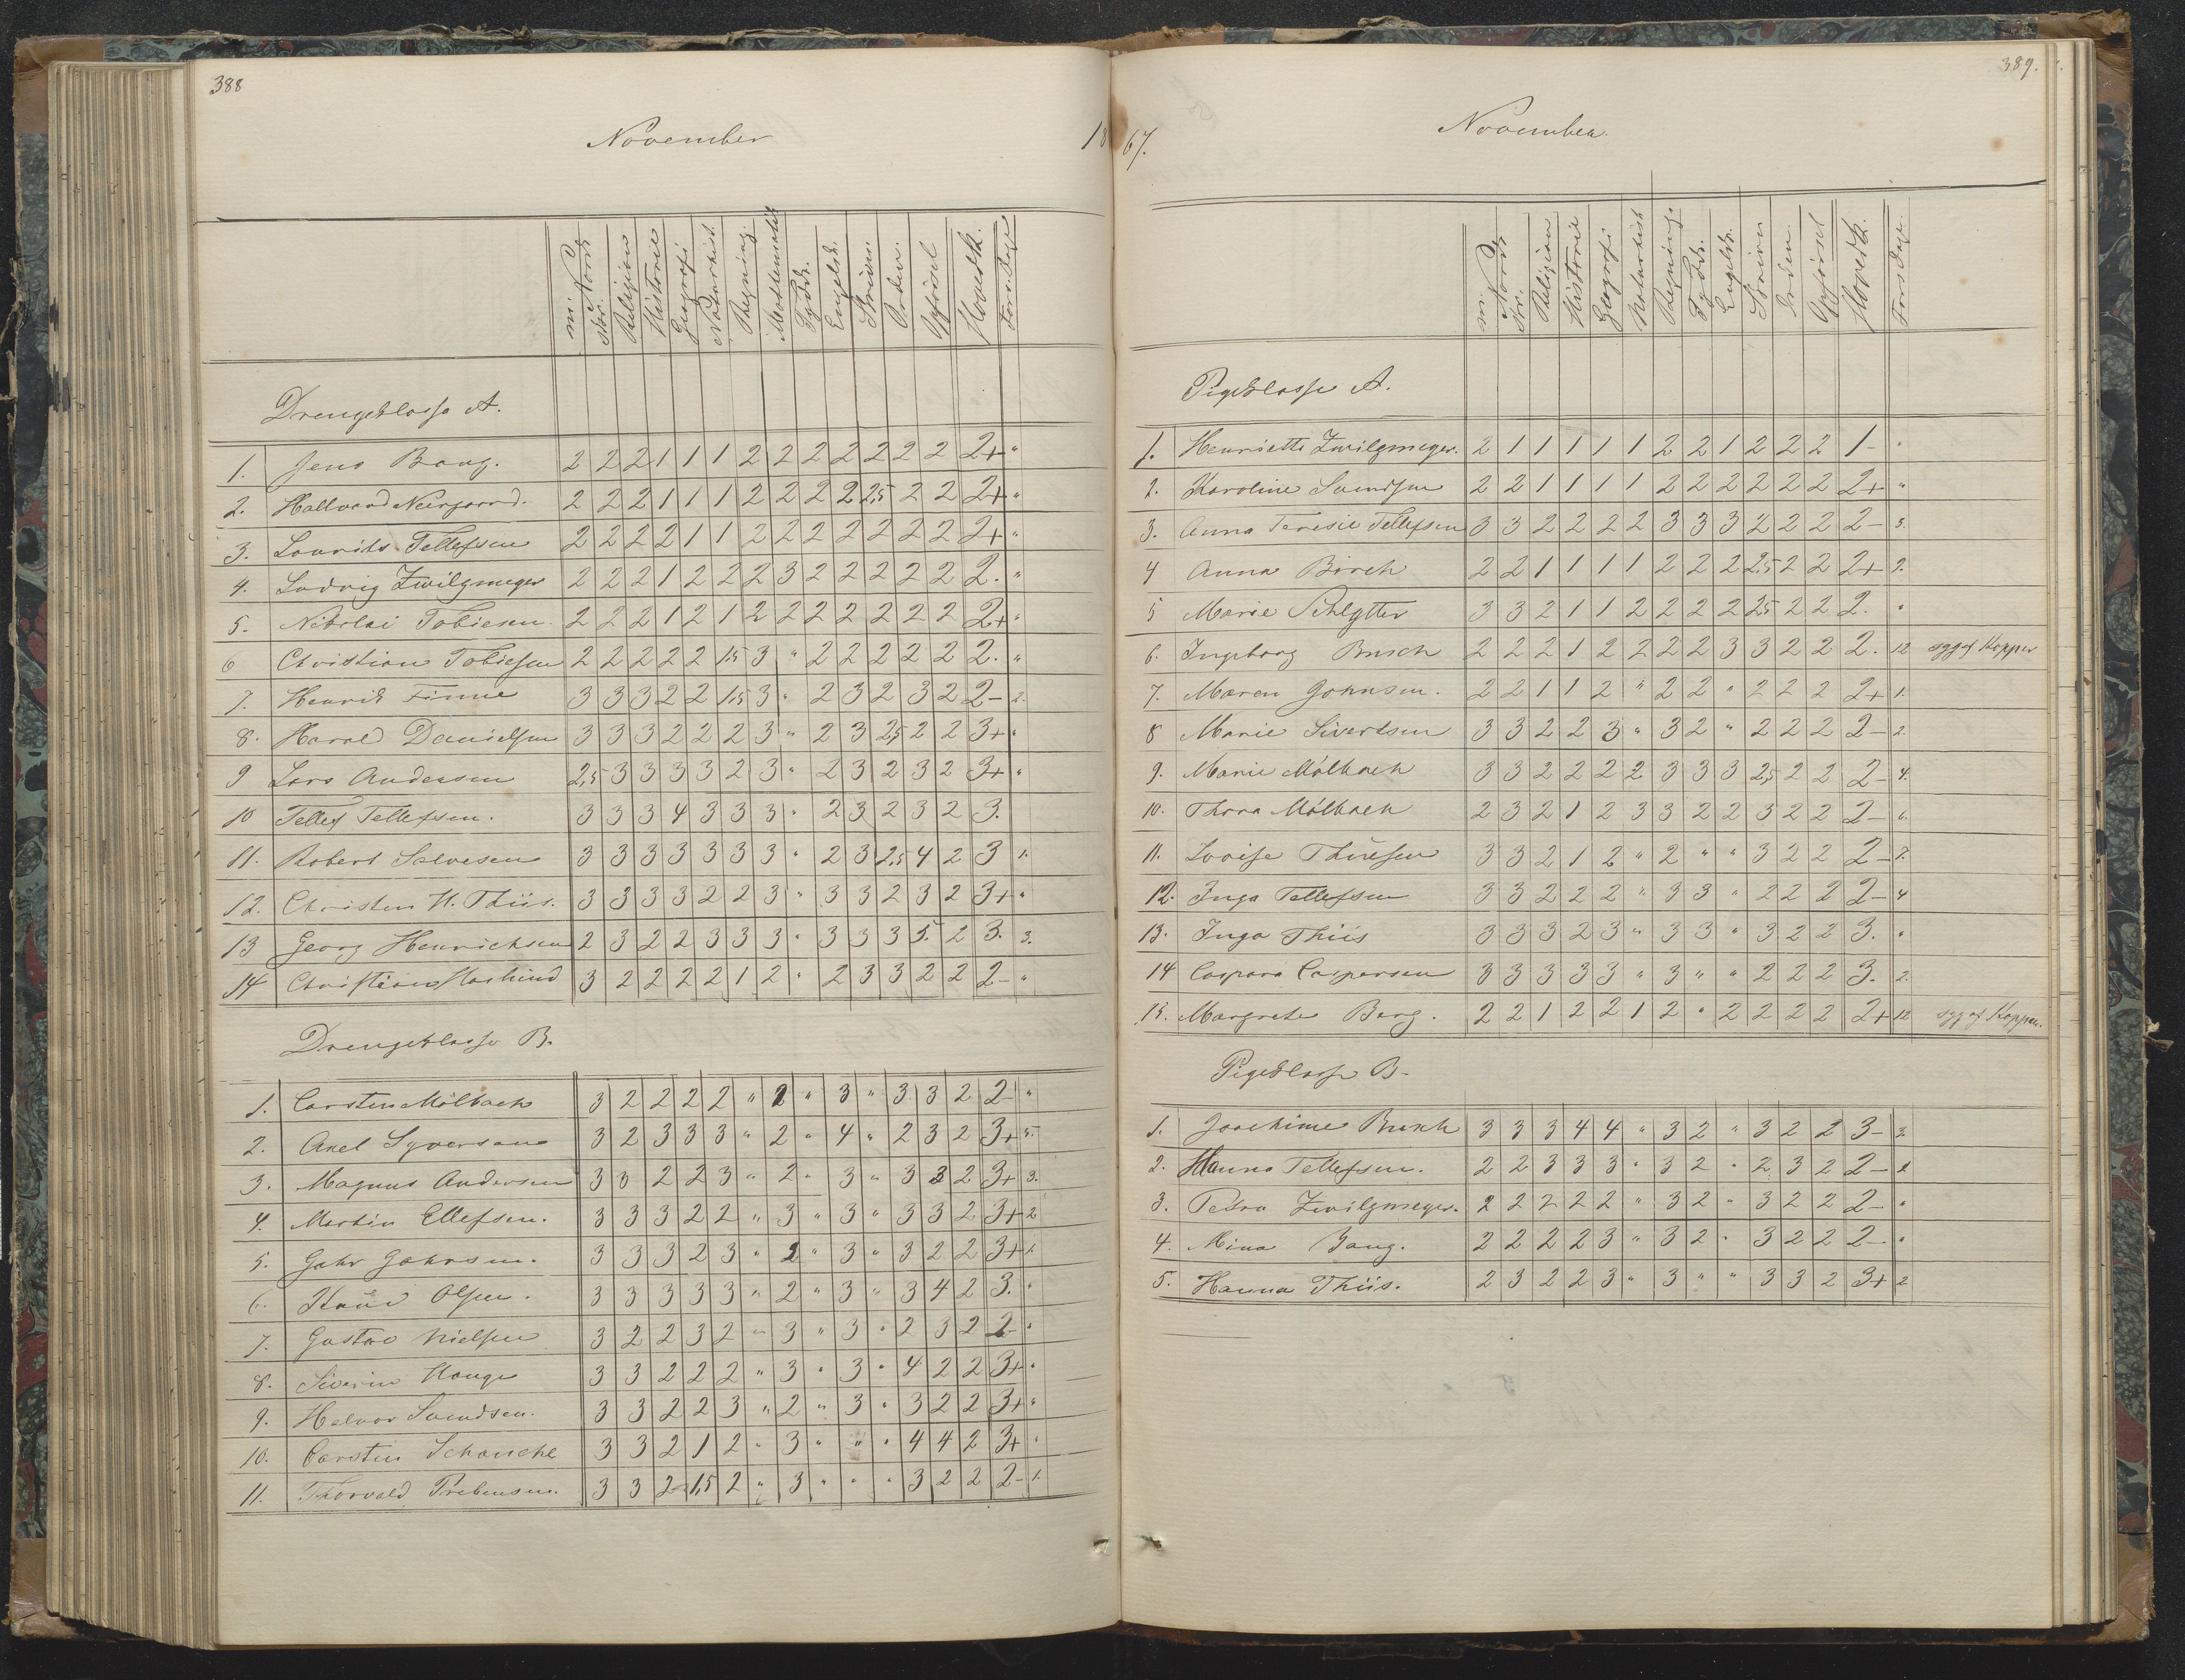 388
November 18
mi Norsk
Nor.
Religion
Historie
Geografi
Naturhist.
Regning.
Mathematik
Tydsk.
Engelsk.
Skrivn.
Orden.
Opførsel
Hovedk.
Fors. Dage
Drengeklasse A.
1. Jens Bang. 2 2 2 1 1 1 2 2 2 2 2 2 2 2+ "
2. Hallvard Neergaard. 2 2 2 1 1 1 2 2 2 2 2,5 2 2 2+ "
3. Lourits Tellefsen 2 2 2 2 1 1 2 2 2 2 2 2 2 2+ "
4. Ludvig Zwilgmeyer 2 2 2 1 2 2 2 3 2 2 2 2 2 2. "
5. Nikolai Tobiesen. 2 2 2 1 2 1 2 2 2 2 2 2 2 2+ "
6 Christian Tobiesen 2 2 2 2 2 1,5 3 " 2 2 2 2 2 2. "
7. Henrik Finne 3 3 3 2 2 1,5 3 " 2 3 2 3 2 2- 2.
8. Harald Danielsen 3 3 3 2 2 2 3 " 2 3 2,5 2 2 3+ "
9 Lars Andersen 2,5 3 3 3 3 2 3 " 2 3 2 3 2 3+ "
10 Tellef Tellefsen. 3 3 3 4 3 3 3 " 2 3 2 3 2 3.
11. Robert Salvesen 3 3 3 3 3 3 3 " 2 3 2,5 4 2 3 1.
12. Christen H. Thiis. 3 3 3 3 2 2 3 " 3 3 2 3 2 3+ "
13 Georg Henrichsen 2 3 2 2 3 3 3 " 3 3 3 5. 2 3. 3.
14 Christian 3 2 2 2 2 1 2 " 2 3 3 2 2 2- "
Drengeklasse B.
1. Carsten Mölbach 3 2 2 2 2 " 2 " 3 " 3 3 2 2- "
2. Axel Syversen 3 2 3 3 3 " 2 " 4 " 2 3 2 3+ 5.
3. Magnus Andersen 3 3 2 2 3 " 2 " 3 " 3 3 2 3+ 3.
4. Martin Ellefsen. 3 3 3 2 2 " 3 " 3 " 3 3 2 3+ 2
5. Gahr Gahrsen. 3 3 3 2 3 " 2 " 3 " 3 2 2 3+ 1.
6. Knud Olsen. 3 3 3 3 3 " 2 " 3 " 3 4 2 3. "
7. Gustav Nielsen 3 2 2 3 2 " 3 " 3 " 2 3 2 2- "
8. Siverin Hauge 3 3 2 2 2 " 3 " 3 " 4 2 2 3+ "
9. Halvor Svendsen. 3 3 2 2 3 " 2 " 3 " 3 2 2 3+ "
10. Carstin Schanche 3 3 2 1 2 " 3 " " " 4 4 2 3+ "
11. Thorvald Prebensen. 3 3 2 1,5 2 " 3 " " " 3 2 2 2- 1.
389.
67. November.
mi Norsk
Nr.
Religion
Historie
Geografi
Naturhist
Regning.
Tydsk.
Engelsk.
Skrivn
Orden.
Opførsel
Hovedk.
Fors Dage.
Pigeklasse A.
1. Henriette Zwilgmeyer. 2 1 1 1 1 1 2 2 1 2 2 2 1- "
2. Karoline Svendsen 2 2 1 1 1 1 2 2 2 2 2 2 2+ "
3. Anna Teresie Tellefsen 3 3 2 2 2 2 3 3 3 2 2 2 2- 3.
4 Anna Börch 2 2 1 1 1 1 2 2 2 2,5 2 2 2+ 2.
5 Marie Schlytter 3 3 2 1 1 2 2 2 2 2,5 2 2 2. "
6. Ingeborg Busch 2 2 2 1 2 2 2 2 3 3 2 2 2. 12 syg af Kopper
7. Maren Johnsen. 2 2 1 1 2 " 2 2 " 2 2 2 2+ 1.
8 Marie Sivertsen 3 3 2 2 3 " 3 2 " 2 2 2 2- 2.
9. Marie Mölbach 3 3 2 2 2 2 3 3 3 2,5 2 2 2- 4.
10. Thora Mölbach 2 3 2 1 2 3 3 2 2 3 2 2 2- 6.
11. Lovise Thuesen 3 3 2 1 2 " 2 " " 3 2 2 2- 7.
12. Inga Tellefsen 3 3 2 2 2 " 3 3 " 2 2 2 2- 4
13. Inga Thiis 3 3 3 2 3 " 3 3 " 3 2 2 3. "
14 Caspara Caspersen 3 3 3 3 3 " 3 " " 2 2 2 3. 2.
15. Margrete Berg. 2 2 1 2 2 1 2 " 2 2 2 2 2+ 12 syg af Kopper.
Pigeklasse B.
1. Joachime Busch 3 3 3 4 4 " 3 2 " 3 2 2 3- 3.
2. Hanna Tellefsen. 2 2 3 3 3 " 3 2 " 2 3 2 2- 1.
3. Petra Zwilgmeyer. 2 2 2 2 2 " 3 2 " 3 2 2 2- "
4. Mina Bang. 2 2 2 2 3 " 3 2 " 3 2 2 2- "
5. Hanna Thiis. 2 3 2 2 3 " 3 " " 3 3 2 3+ 2